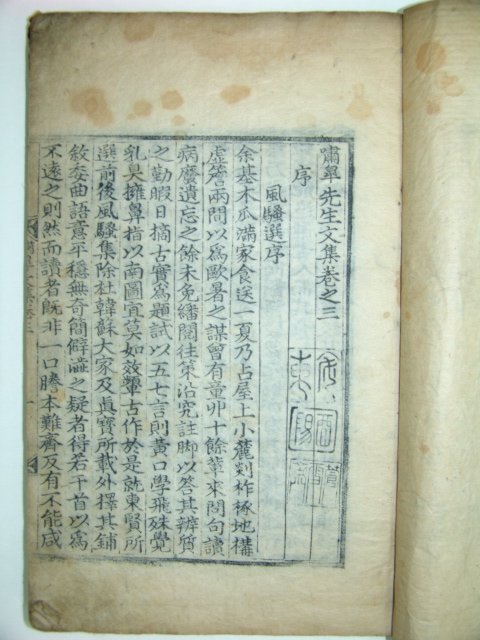 嘯皐先生文集卷之三
序
風騷選序
余基木瓜滿家食送一夏乃占屋上小麓剗柞椓地構
虛簷兩間以爲歐暑之謀曾有童丱十餘輩來問句讀
病廢遺忘之餘未免繙閱往策沿究註脚以答其辨質
之勤暇日摘古實爲題試以五七言則黃口學飛殊覺
乳臭擁鼻指以南圖宜莫如效顰古作於是就東賢所
選前後風騷集除杜韓蘇大家及眞寶所載外擇其鋪
敘委曲語意平穩無奇簡僻澁之疑者得若干首以爲
不遠之則然而讀者旣非一口謄本難齊及有不能咸